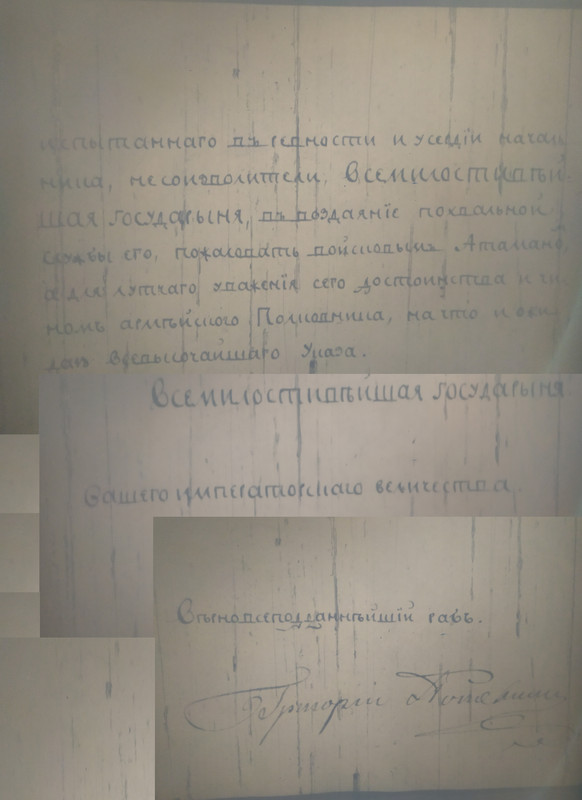 испытаннаго въ верности и усердіи началь-
ника, несоизволители, Всемилостивѣй-
шая государыня, въ воздаяніе похвальной
службы его, пожаловать войсковымъ Атаманомъ,
а для лутчаго уваженія сего достоинства и чи-
номъ армѣйского Полковника, на что и ожи-
даю Всевысочайшаго Указа.
Всемилостивѣйшая государыня
Вашего императорскаго величества
Вѣрноподданнѣйшій рабъ.
Григорій Потемкин